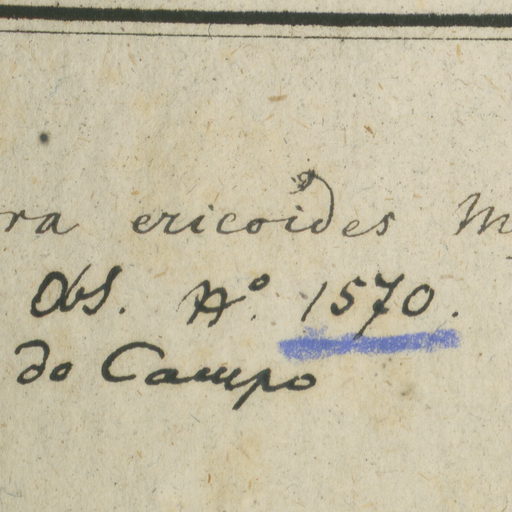 ra ericoides M
Obs. Nº. 1570.
do Campo